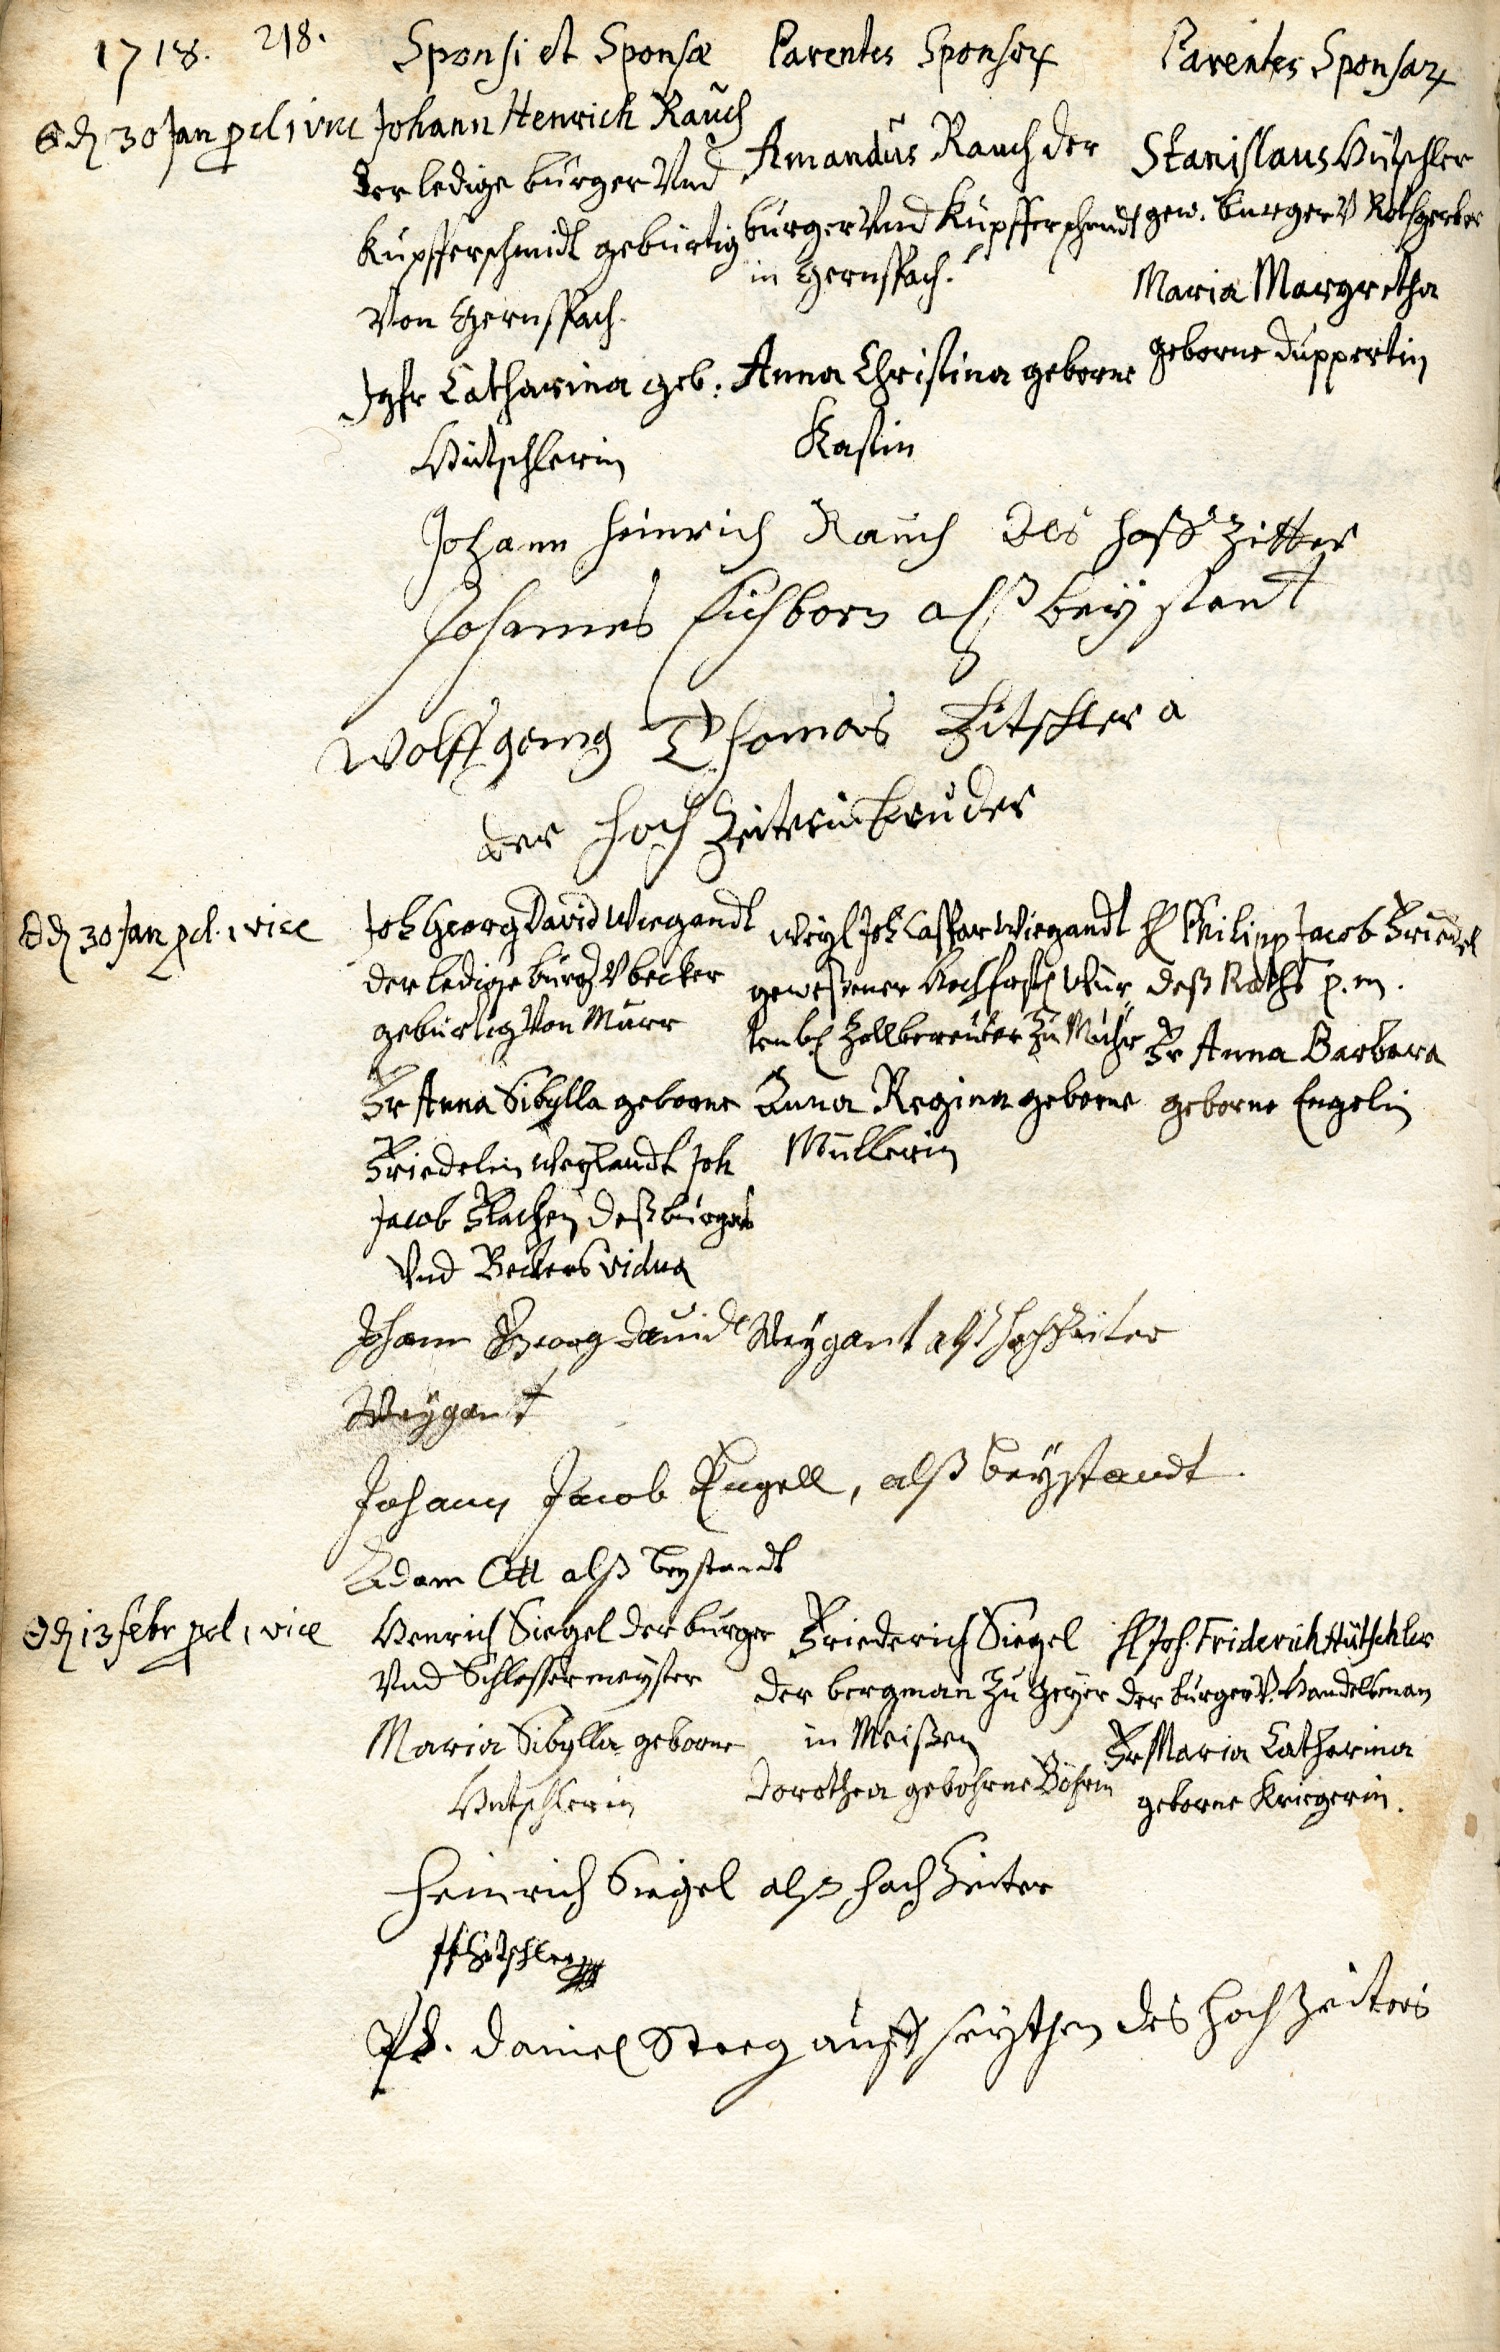 1718. 218.
Sponsi et Sponsæ
Parentes Sponsor
Parentes Sponsar
30 Jan pcl 1 vice
Johann Henrich Rauch
der ledige burger Und
Kupfferschmidt gebürtig
Von Gernspach.
Jgfr Catharina geb.
Hütschlerin
Amandus Rauch der
burger Und Kupfferschmidt
in Gernspach.
Anna Christina geborne
Kastin
Stanislaus Hütschler
gew. burger V Rothgerber
Maria Margretha
geborne Duppertin
Johann Heinrich Rauch des
Johannes Eichborn alß beystant
Wolffgang Thomas Hitschler a
der hoch Zeiterin bruder
30 Jan pcl. 1 vice
Joh Georg David Wiegandt
der ledige burg V becker
gebürtig Von Murr
Fr Anna Sibylla geborne
Friedelin weylandt Joh
Jacob Flachen deß burgers
Und Beckers vidua
weyl Joh Caspar Wiegandt
geweßener Hochfürstl Wür
tenb Zollbereuter Zu
Anna Regina geborne
Müllerin
H Philipp Jacob Friedel
deß Raths p. m.
Fr Anna Barbara
geborne Engelin
Johann Georg David Weygant alß hochzeiter
Weygant
Johann Jacob Engell, alß beystandt.
Adam Ott alß beystandt
13 febr pcl 1 vice
Henrich Siegel der burger
Und Schlossermeyster
Maria Sibylla geborne
Hutschlerin
Friederich Siegel
der bergman Zu Geyer
in Meißen
Dorothea gebohrne Böhmin
H Joh. Friderich Hütschler
der burger V. Handelsman
Fr Maria Catharina
geborne Kriegerin.
Heinrich Siegel alß hoch Zeiter
Hitschler
Ph. Daniel Steeg auff seythen des hoch zeiters